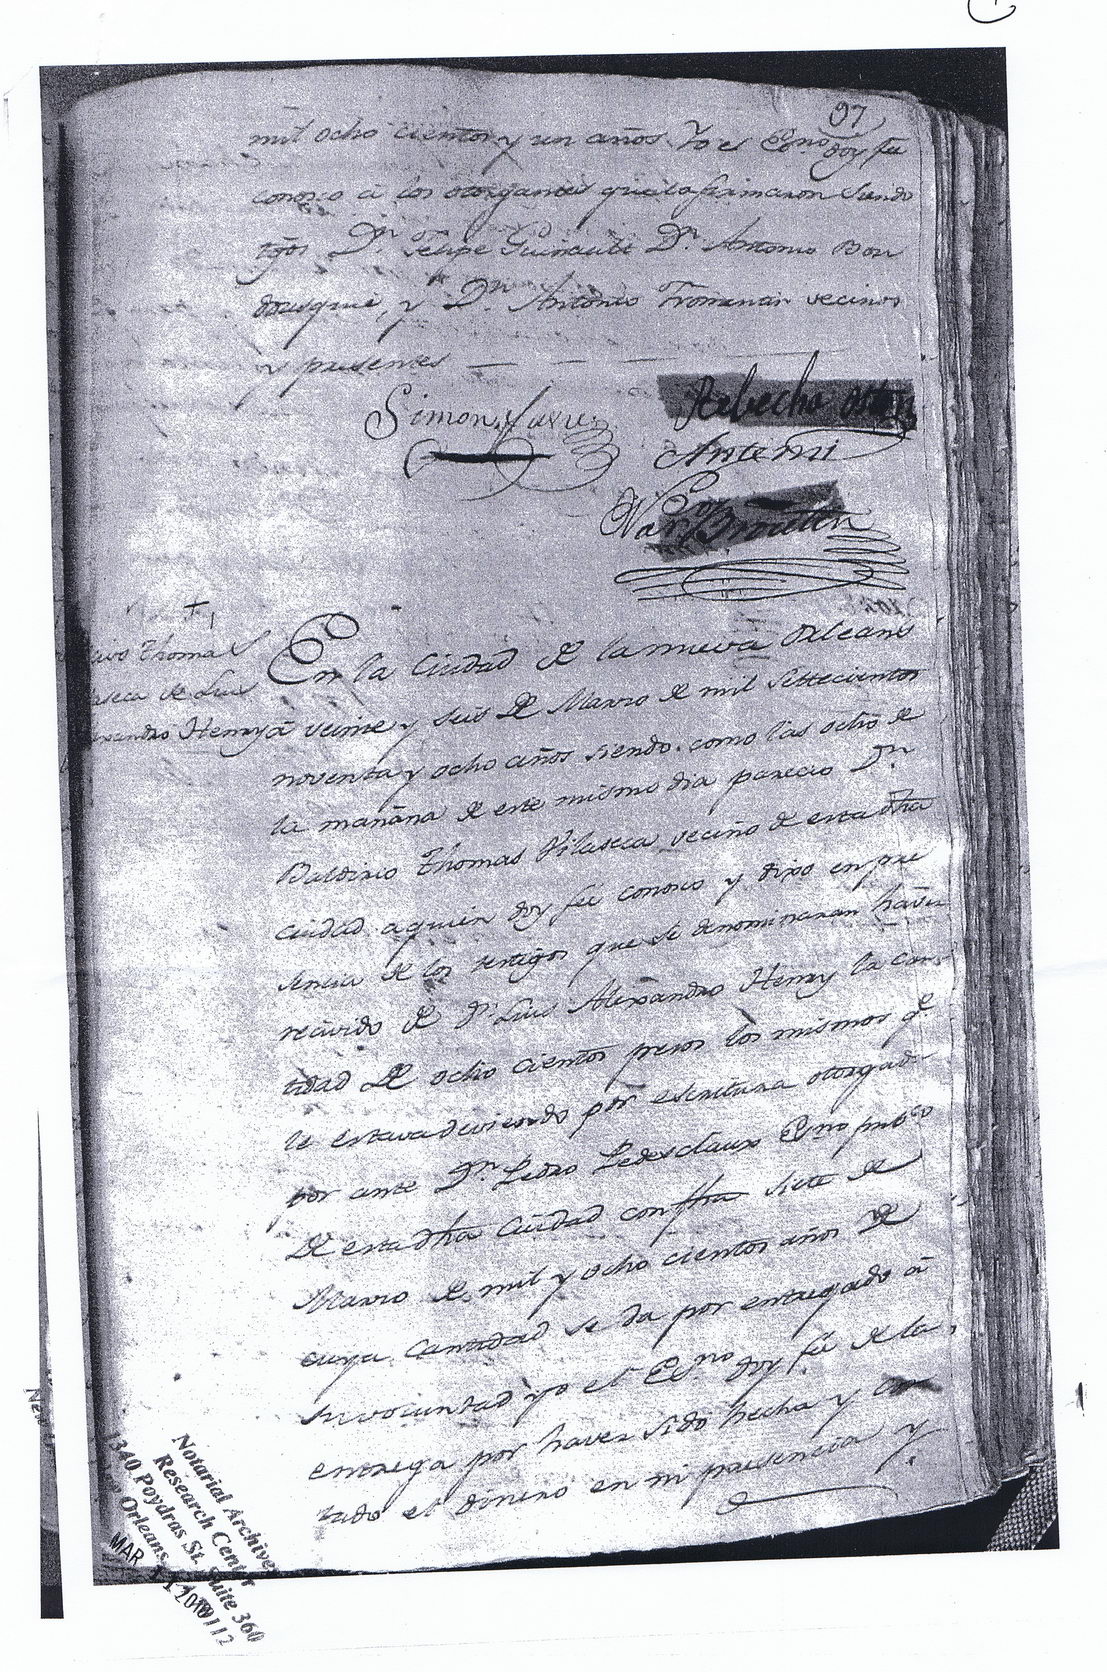 97
mil ocho cientos y un años Yo el Es.no doy fe
conosco a los otorgantes que lo firmaron siendo
tgos D.n Felipe Guinault D.n Antonio Bou
dousquie, y D.n Antonio Fromentin vecinos
y presentes
Simon
Rebecha
Ante mi
Nar. Broutin
Thomas
aseca de Luis
exandro Henry
En la Ciudad de la nueva Orleans
a veinte y seis de Marzo de mil settecientos
noventa y ocho años siendo como las ocho de
la mañana de este mismo dia parecio D.n
Baldirio Thomas Vilaseca vecino de esta dha
ciudad aquien doy fee conosco y dixo en pre
sencia de los testigos que se denominaran haver
recivido de D.n Luis Alexandro Henry la can
tidad de ocho cientos pesos los mismos q.e
le estava deviendo por escritura otorgada
por ante D.n Pedro Pedesclaux Es.no pub.co
de esta dha Ciudad con fha siete de
Marzo de mil y ocho cientos años de
cuya cantidad se da por entregado a
su voluntad yo el Es.no doy fee de la
entrega por haver sido hecha y con
tado el dinero en mi presencia y
Notarial Archives
Research Center
1340 Poydras St. Suite 360
New Orleans, 70112
MAR 11 2010